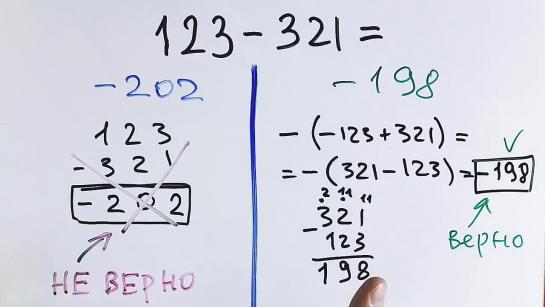 123 - 321 =
-202
123
- 321
-202
НЕ ВЕРНО
-198
-(-123+321) =
= -(321-123) = -198
2 11 11
- 321
123
198
верно